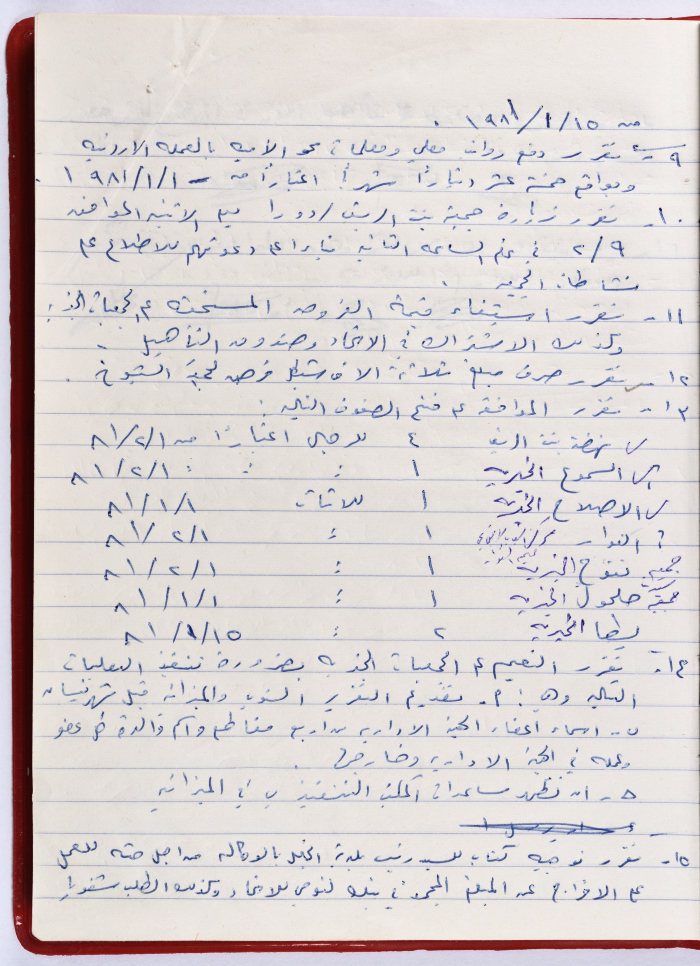 من ١٥/١/١٩٨١ .
٩- تقرر دفع رواتب معلمي ومعلمات محو الأمية بالعملة الاردنية
وبواقع خمسة عشر ديناراً شهرياً اعتباراً من ١/١/١٩٨١ .
١٠- تقرر زيارة جمعية بنت الريف / دورا يوم الاثنين الموافق
٩/٢ في تمام الساعة الثانية ودعوتهم للاطلاع على
نشاطات الجمعية .
١١- تقرر استيفاء قيمة القروض المستحقة على الجمعيات الخيرية
وكذلك الاشتراك في الاتحاد وصندوق التأهيل .
١٢- تقرر صرف مبلغ ثلاثة الاف شيكل قرض لجمعية الشيوخ .
١٣- تقرر الموافقة على فتح الصفوف التالية :
نهضة بنت الريف ٤ للرجال اعتباراً من ١/٢/٨١
السموع الخيرية ١ : : : ١/٢/٨١
الاصلاح الخيرية ١ للاناث ١/١/٨١
١ : ١/٢/٨١
جمعية نتوح الخيرية ١ : ١/٢/٨١
جمعية سيدات حلحول الخيرية ١ : ١/١/٨١
يطا الخيرية ٢ : ١٥/١/٨١
١٤- تقرر التعميم على الجمعيات الخيرية بضرورة تنفيذ التعليمات
التالية وهي : أ- تقديم التقرير السنوي والميزانية قبل شهر نيسان
ب- اسماء اعضاء الهيئة الادارية من اربع مقاطع واسم والدة كل عضو
وعمله في الهيئة الادارية وخارجها .
ج- ان تظهر مساعدات المكتب التنفيذي في الميزانية
١٥- تقرر توجيه كتاب للسيد رئيس بلدية الخليل بالوكالة من اجل حثه للعمل
على الافراج عن المبلغ المجمد في بنك لئومي للاتحاد وكذلك الطلب شفويا